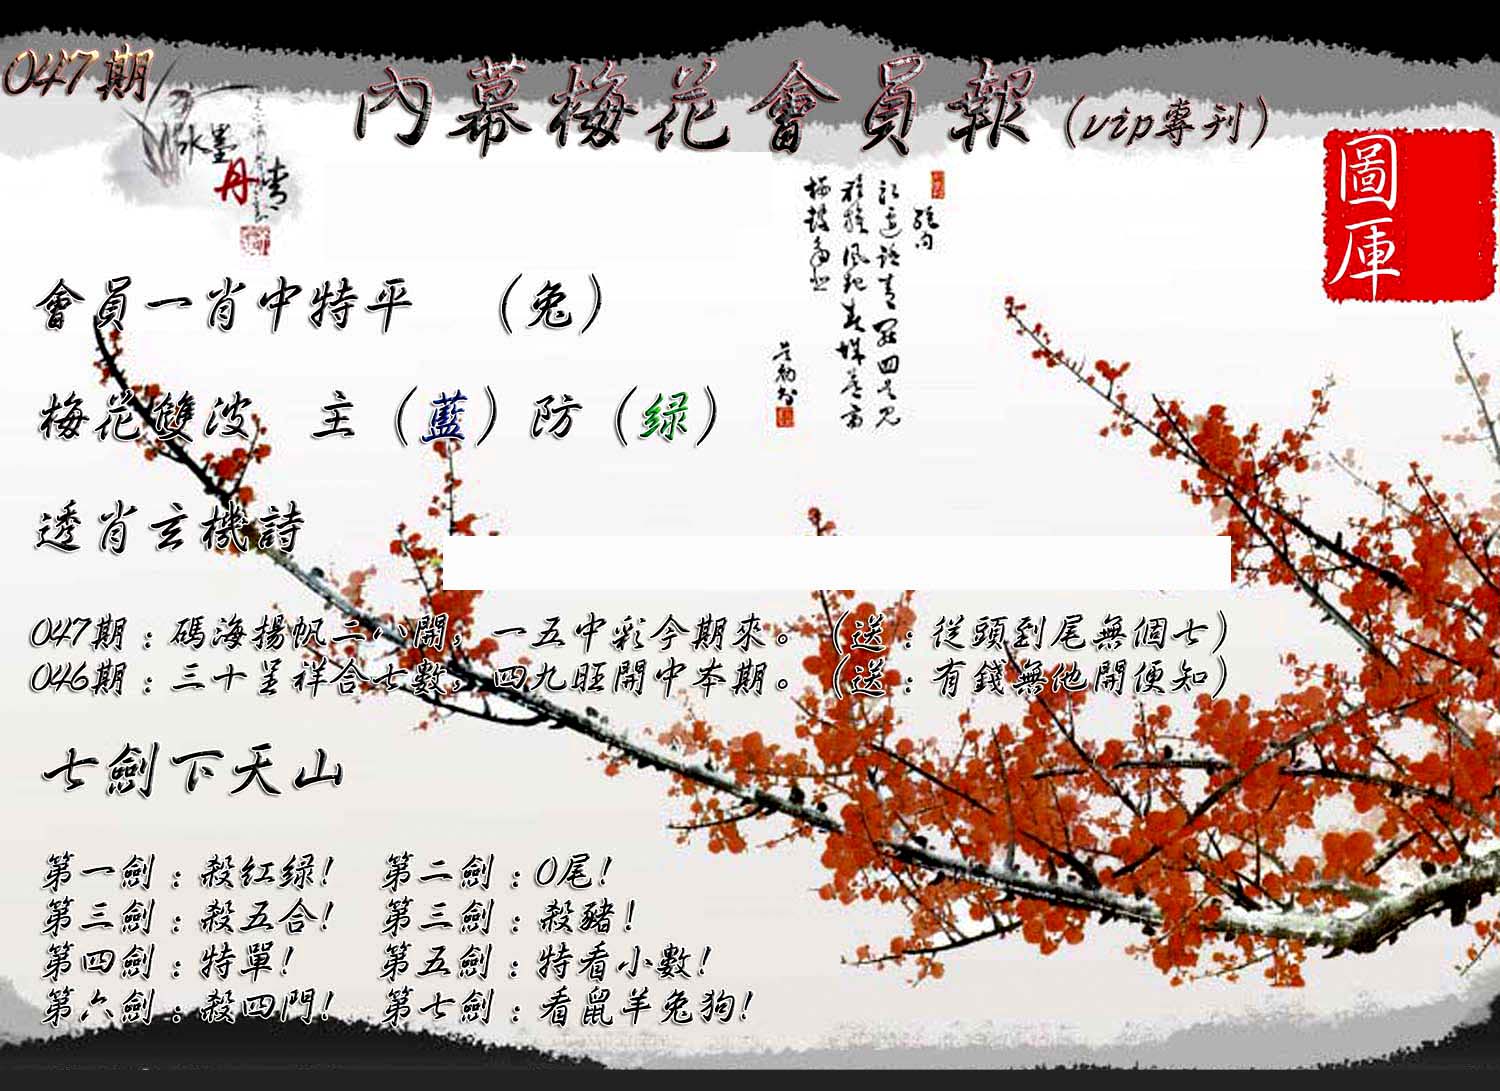 047期
內幕梅花會員報(vip專刊)
水墨
丹青
圖庫
會員一肖中特平 (兔)
梅花雙波 主(藍)防(绿)
透肖玄機詩
047期:碼海揚帆二八開,一五中彩今期來。(送:從頭到尾無個七)
046期:三十呈祥合七數,四九旺開中本期。(送:有錢無他開便知)
七劍下天山
第一劍:殺红绿! 第二劍:0尾!
第三劍:殺五合! 第三劍:殺豬!
第四劍:特單! 第五劍:特看小數!
第六劍:殺四門! 第七劍:看鼠羊兔狗!